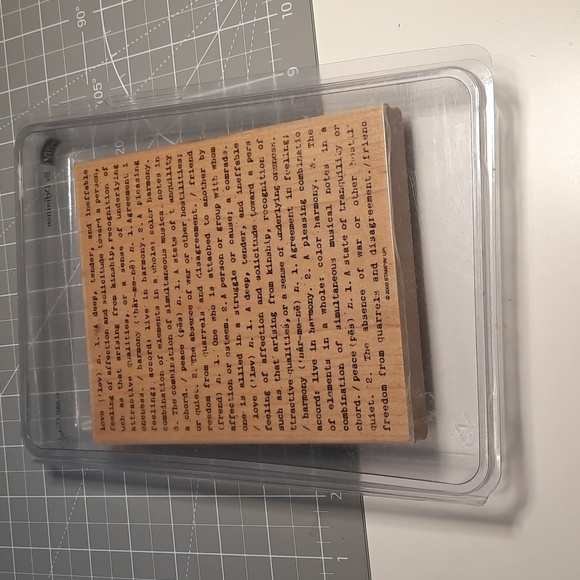 love ('ləv) n. 1. A deep, tender, and ineffable
feeling of affection and solicitude toward a person,
such as that arising from kinship, recognition of
attractive qualities, or a sense of underlying
oneness. harmony ('här-me-nē) n. 1. Agreement i
feeling; accord: live in harmony. 2. A pleasing
combination of elements in a whole: color harmony.
3. The combination of simultaneous musical notes in
a chord. / peace (pēs) n. 1. A state of tranquility
or quiet. 2. The absence of war or other hostilities;
freedom from quarrels and disagreement. / friend
(frend) n. 1. One who is attached to another by
affection or esteem. 2. A person or group with whom
one is allied in a struggle or cause; a comrade.
/ love ('ləv) n. 1. A deep, tender, and ineffable
feeling of affection and solicitude toward a pers
such as that arising from kinship, recognition of
attractive qualities, or a sense of underlying oneness.
/ harmony ('här-me-nē) n. 1. Agreement in feeling;
accord: live in harmony. 2. A pleasing combinatio
of elements in a whole: color harmony. 3. The
combination of simultaneous musical notes in a
chord. / peace (pēs) n. 1. A state of tranquility or
quiet. 2. The absence of war or other hostil
freedom from quarrels and disagreement. / friend
© 2009 STAMPIN' UP!
By Definition
90°
105°
10
9
2
1